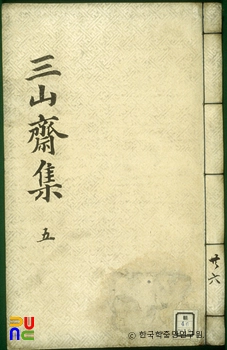 三山齋集
五
共六
© 한국학중앙연구원